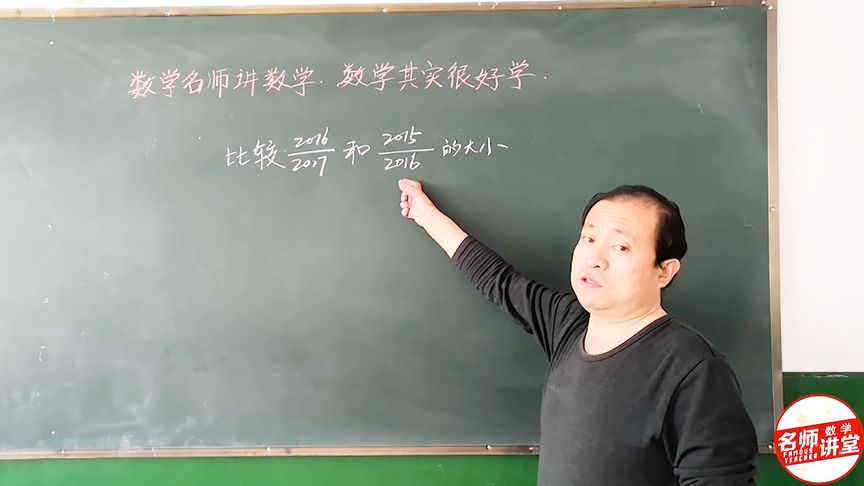 数学名师讲数学.数学其实很好学.
比较 2016/2017 和 2015/2016 的大小
数学
名师讲堂
FAMOUS
TEACHER